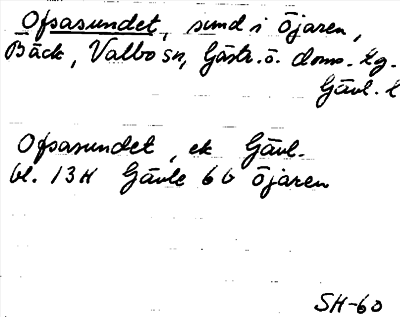 Ofsasundet, sund i Öjaren,
Bäck, Valbo sn, Gästr. ö. doms. tg.
Gävl. l
Ofsasundet, ek Gävl.
bl. 13H Gävle 6b Öjaren
SH-60